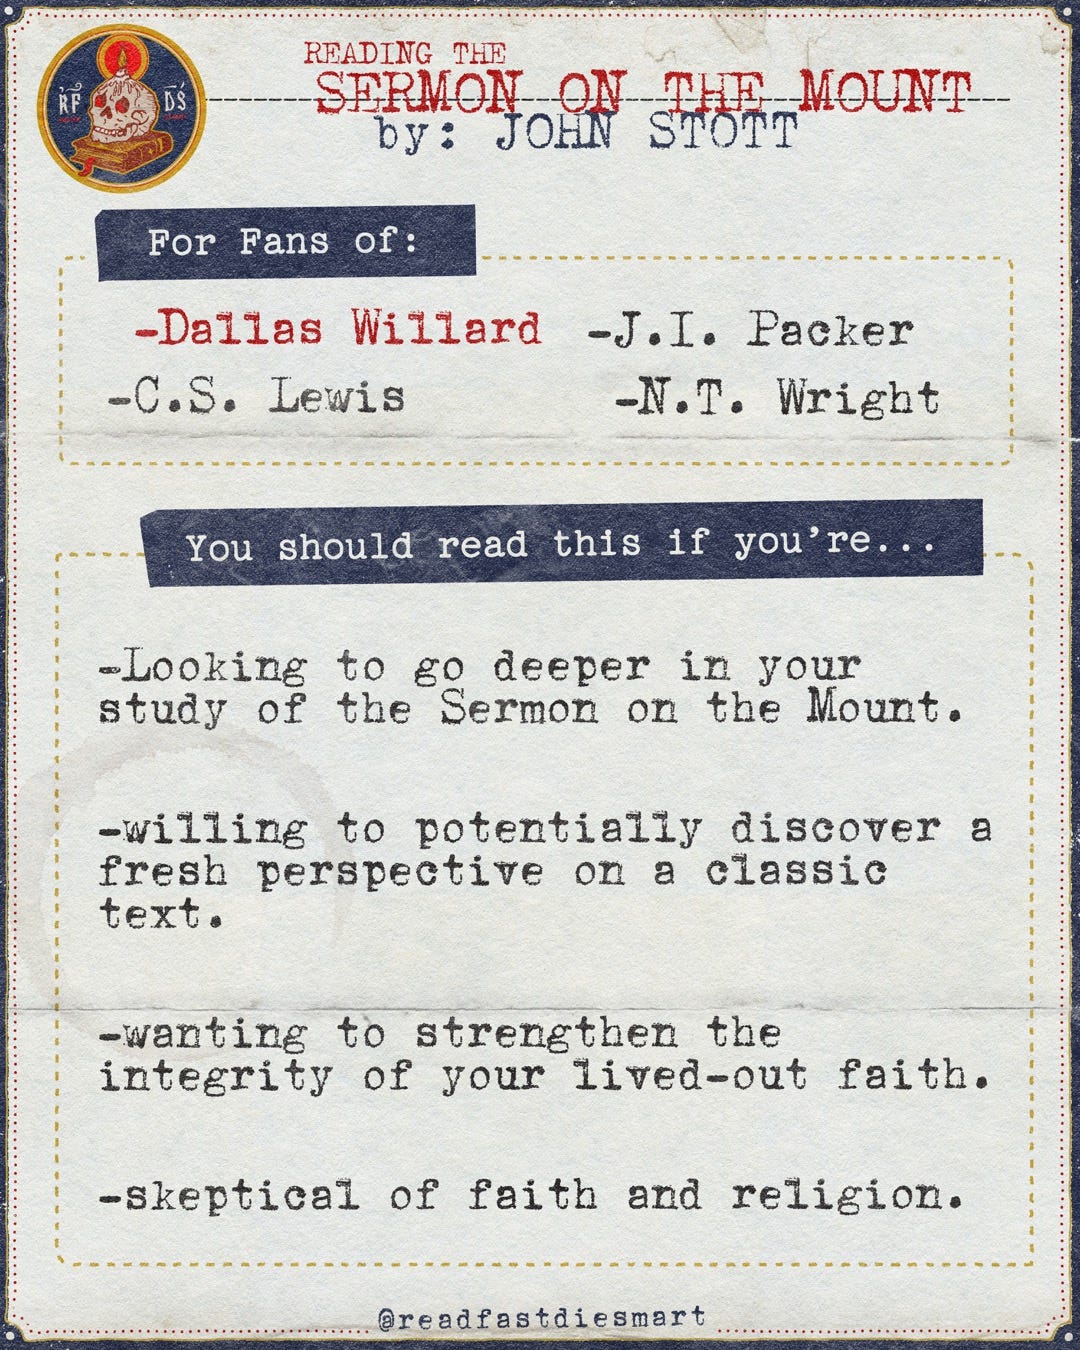 RF DS
READING THE
SERMON ON THE MOUNT
by: JOHN STOTT
For Fans of:
-Dallas Willard -J.I. Packer
-C.S. Lewis -N.T. Wright
You should read this if you're...
-Looking to go deeper in your
study of the Sermon on the Mount.
-willing to potentially discover a
fresh perspective on a classic
text.
-wanting to strengthen the
integrity of your lived-out faith.
-skeptical of faith and religion.
@readfastdiesmart